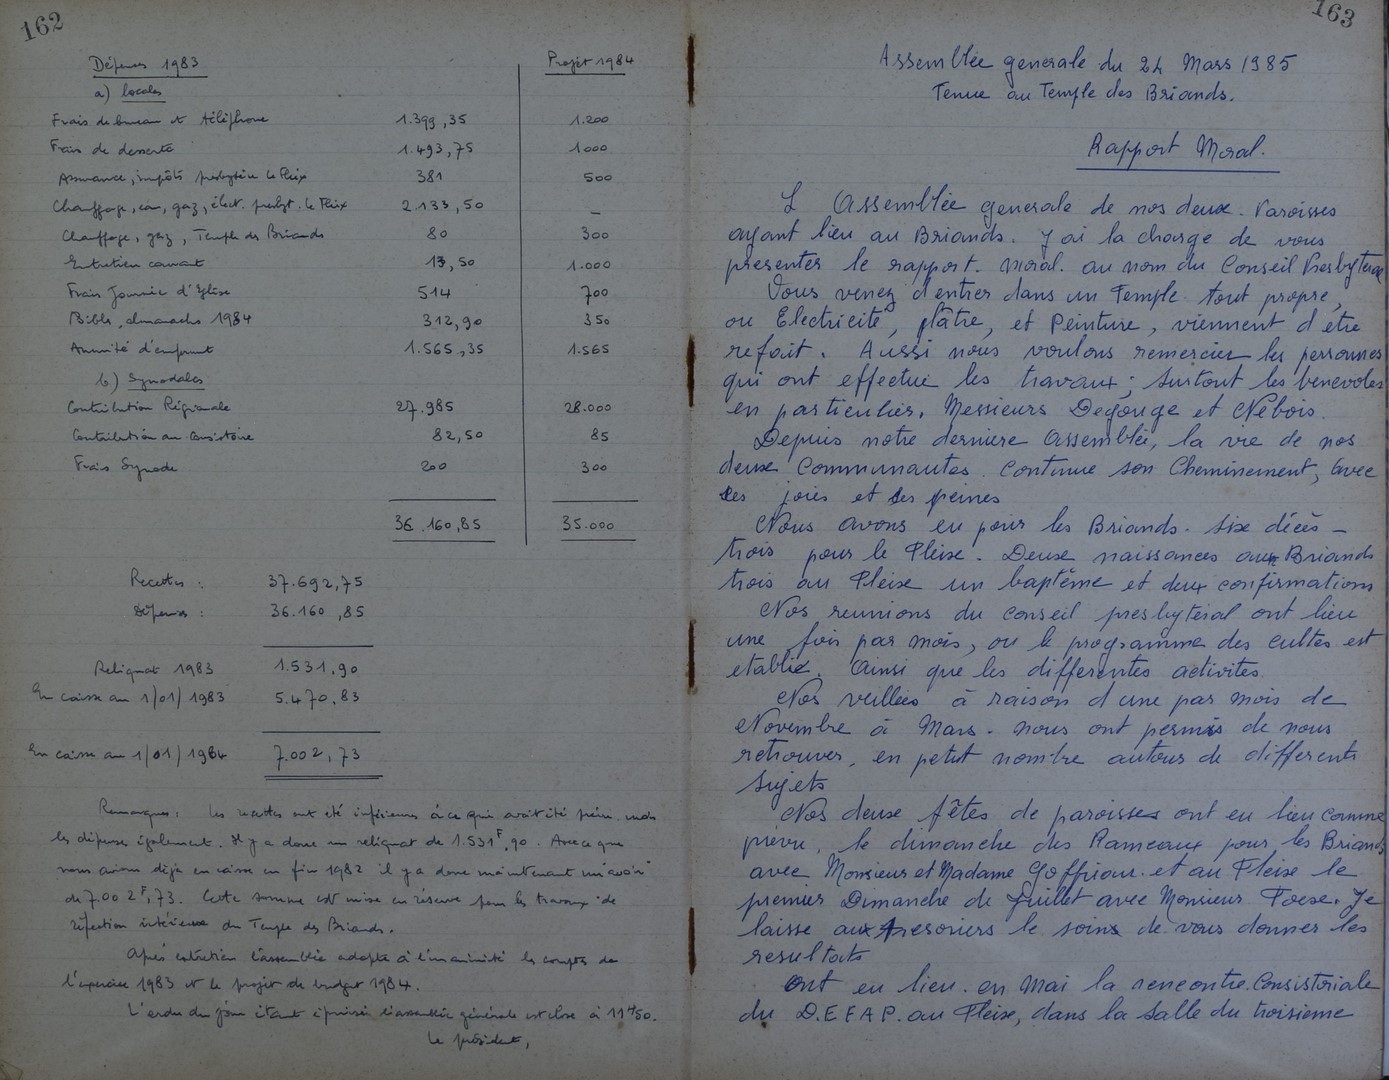 162
Dépenses 1983
Projet 1984
a) locales
Frais de bureau et téléphone 1.399,35 1.200
Frais de desserte 1.493,75 1000
Assurance, impôts presbytère le Fleix 381 500
Chauffage, eau, gaz, élect. presbyt. le Fleix 2133,50 _
Chauffage, gaz, Temple des Briands 80 300
Entretien courant 13,50 1.000
Frais Journée d'Eglise 514 700
Bibles, almanachs 1984 312,90 350
Annuité d'emprunt 1.565,35 1.565
b) Synodales
Contribution Régionale 27.985 28.000
Contribution au consistoire 82,50 85
Frais Synode 200 300
36.160,85 35.000
Recettes : 37.692,75
Dépenses : 36.160,85
Reliquat 1983 1.531,90
En caisse au 1/01/1983 5.470,83
En caisse au 1/01/1984 7.002,73
Remarques : Les recettes ont été inférieures à ce qui avait été prévu mais
les dépenses également. Il y a donc un reliquat de 1.531F,90. Avec ce que
nous avions déjà en caisse en fin 1982 il y a donc maintenant un avoir
de 7.002F,73. Cette somme est mise en réserve pour les travaux de
réfection intérieure du Temple des Briands.
Après entretien l'assemblée adopte à l'unanimité les comptes de
l'exercice 1983 et le projet de budget 1984.
L'ordre du jour étant épuisé l'assemblée générale est close à 11H50.
Le président,
163
Assemblée generale du 24 Mars 1985
Tenue au Temple des Briands.
Rapport Moral.
L Assemblée generale de nos deux. Paroisses
ayant lieu au Briands. J ai la charge de vous
presenter le rapport. moral. au nom du Conseil Presbyteral
Vous venez d'entrer dans un Temple tout propre,
ou Electricité, plâtre, et Peinture, viennent d etre
refait. Aussi nous voulons remercier les personnes
qui ont effectué les travaux ; surtout les benevoles
en particulier. Messieurs Degouge et Nebois.
Depuis notre derniere Assemblée, la vie de nos
deux Communautes. Continue son Cheminement, avec
ses joies et ses peines
Nous avons eu pour les Briands. six décès –
trois pour le Fleix. Deux naissances aux Briands
trois au Fleix un baptême et deux confirmations
Nos reunions du conseil presbytéral ont lieu
une fois par mois, ou le programme des cultes est
etablie. Ainsi que les differentes activites.
Nos veillées à raison d une par mois de
Novembre à Mars. nous ont permis de nous
retrouver, en petit nombre autour de differents
sujets
Nos deux fêtes de paroisses ont eu lieu comme
prevu, le dimanche des Rameaux pour les Briands
avec Monsieur et Madame Goffrion. et au Fleix le
premier Dimanche de Juillet avec Monsieur Foex. Je
laisse aux tresoriers le soins de vous donner les
resultats
ont eu lieu. en Mai la rencontre. Consistoriale
du D.E F A P. au Fleix, dans la salle du troisieme